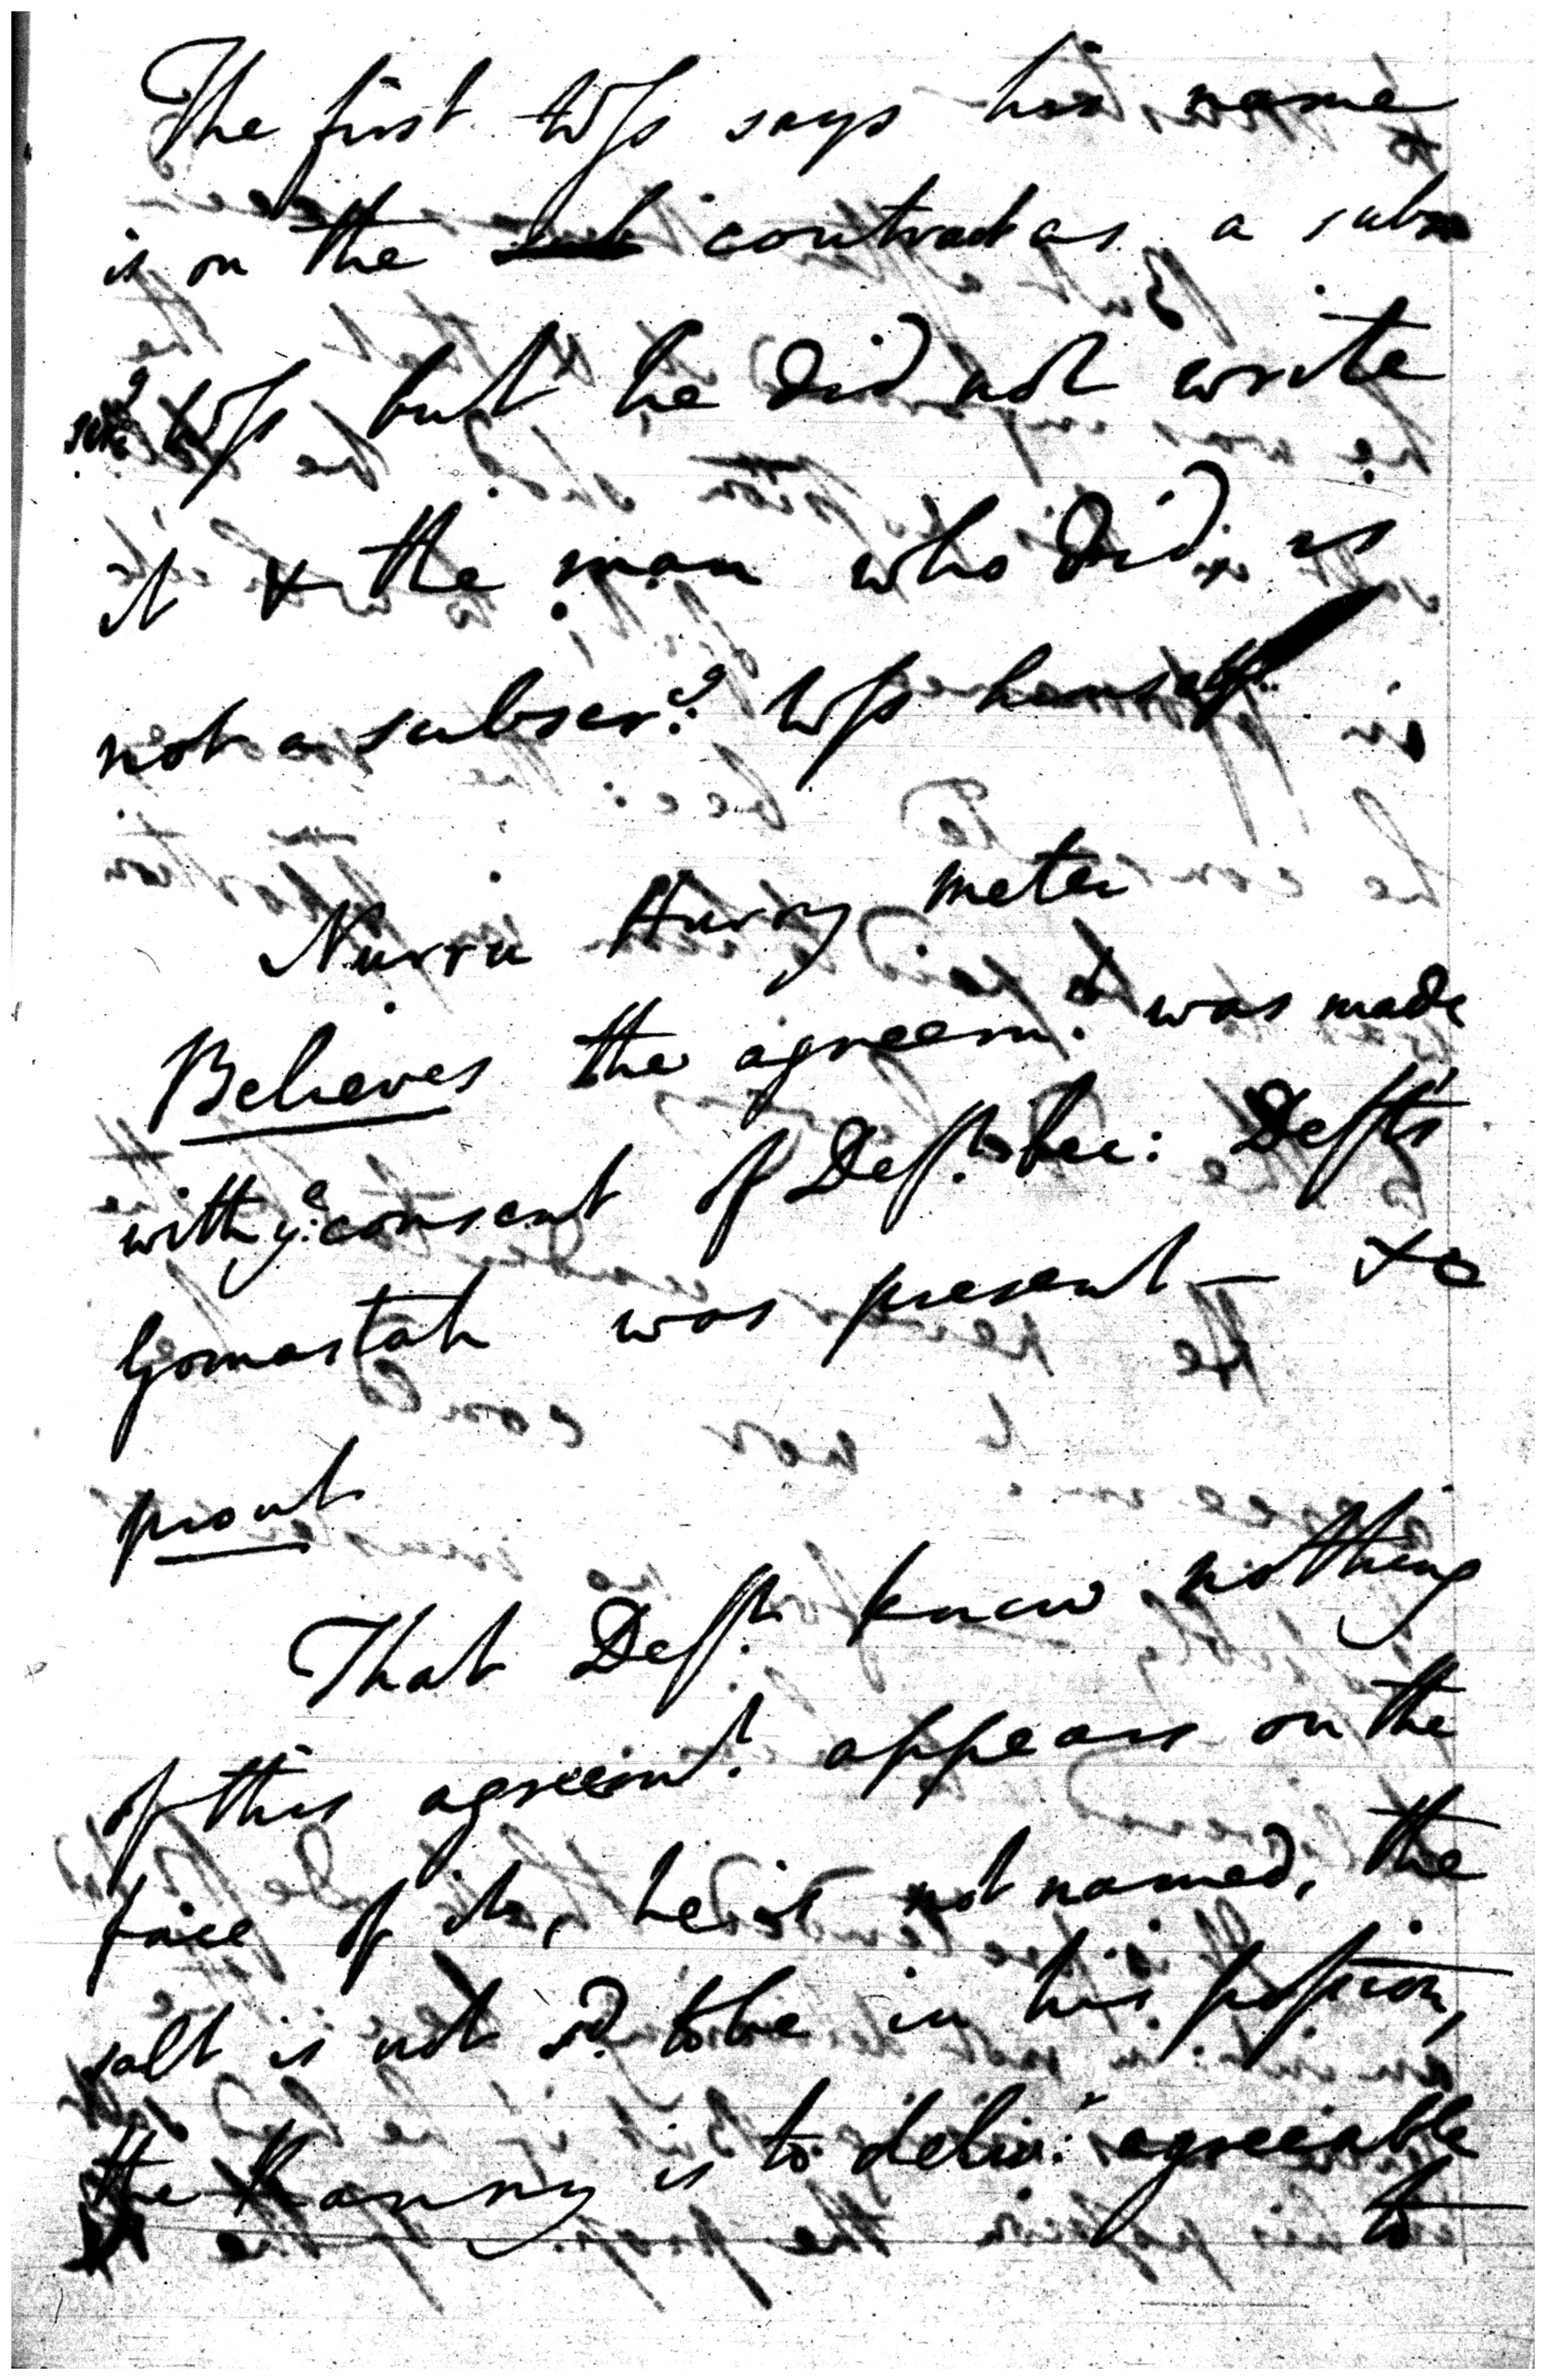 The first Wſs says his name
is on the contract as a sub
Wſs but he did not write
it & the man who did is
not a subscr.g Wſs himself
Nurru Hurry meter
Believes the agreem.t was made
with y.e consent of Def.t bec: Deft's
Gomastah was present —
prout
That Def.t knew nothing
of this agreem.t appears on the
face of it, he is not named, the
salt is not s.d to be in his poſsion,
the Kanny is to deliv.r agreeable
to